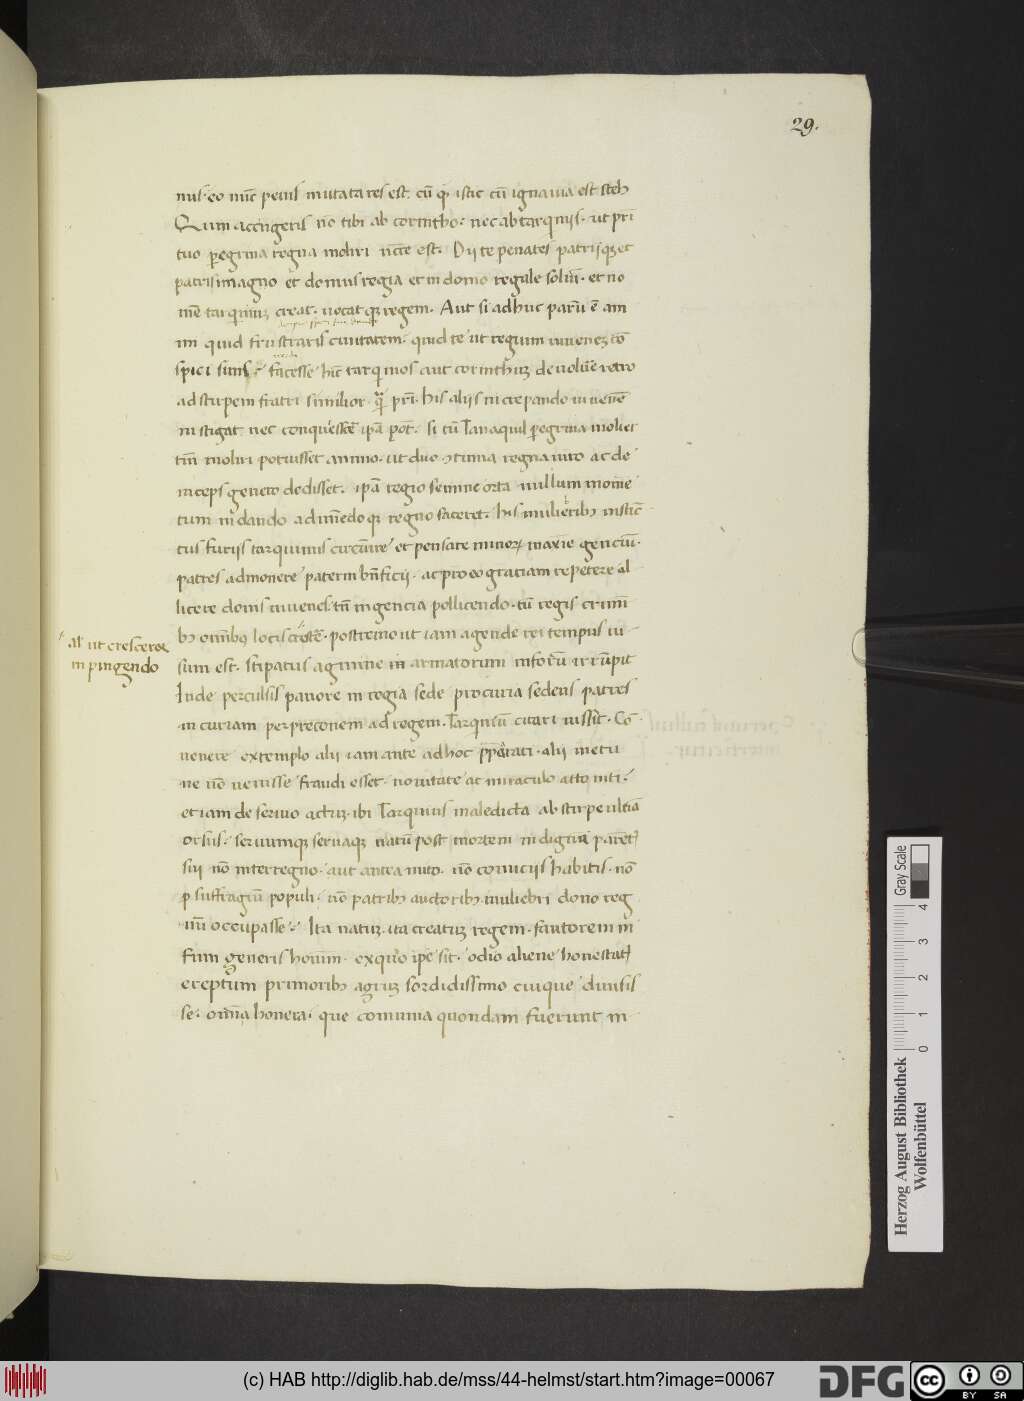 29.
nus· eo nūc peius mutata res est: cū qͥ istic cū ignauia est scelꝯ
Quin accingeris nō tibi ab corintho· nec ab tarquiniis· ut pri
tuo peregrina regna moliri nc̄ce est. Dii te penates patriiqꝫ et
patris imago et domus regia et in domo regale soliū· et no
mē tarquiniū creat· uocat qꝫ regem. Aut si ad huc parū ē ani
mi quid frustraris ciuitatem· quid te ut regium iuuenē cō
spici sinis? facesse hīc tarquinios aut corinthū deuoluere retro
ad stirpem fratri similior qͣ pri· his aliis increpando iuuenē
instigat nec conquiescē ip̄a pot̄. si cū Tanaquil peregrina mulier
tm̄ moliri potuisset animo· ut duo cōtinua regna uiro ac de
inceps genero dedisset· ip̄a regio semine orta nullum mome
tum in dando adimēdo qꝫ regno faceret· his muliebribꝯ instic
tus furiis tarquinius circūire et pensare minorꝫ maxie gentiū·
patres admonere paterni bn̄ficii· ac pro eo gratiam repetere al
licere donis iuuenes tū ingencia pollicendo· tū regis crimi
bꝯ omībꝯ locis cresce· postremo ut iam agende rei tempus ui
al' ut cresceret
in pingendo
sum est· stipatus agmine in armatorum in forū irrūpit
Inde perculsis pauore in regia sede pro curia sedens patres
in curiam per preconem ad regem· Tarquiniū citari iussit· Cō
uenere extemplo alii iam ante ad hoc pp̄arati· alii metu
ne nō uenisse fraudi esset· nouitate ac miraculo attoniti·
et iam de seruo actū· ibi Tarquinius maledicta ab stirpe ultiā
orsus· seruumqꝫ seruaqꝫ natū post mortem indignā parēt
sui nō interregno· aut antea inito· nō comiciis habitis· nō
p suffragiū populi· nō patribꝯ auctoribꝯ muliebri dono reg
nū occupasse· Ita natū· ita creatū regem· fautorem in
fimi generis hoīnm· ex quo ipe sit· odio aliene honestatꝭ
ereptum primoribꝯ agrū sordidissimo cuique diuisis
se· om̄ia honera· que comunia quondam fuerunt in
Gray Scale
0 1 2 3 4
Herzog August Bibliothek
Wolfenbüttel
(c) HAB http://diglib.hab.de/mss/44-helmst/start.htm?image=00067
DFG
cc
BY SA